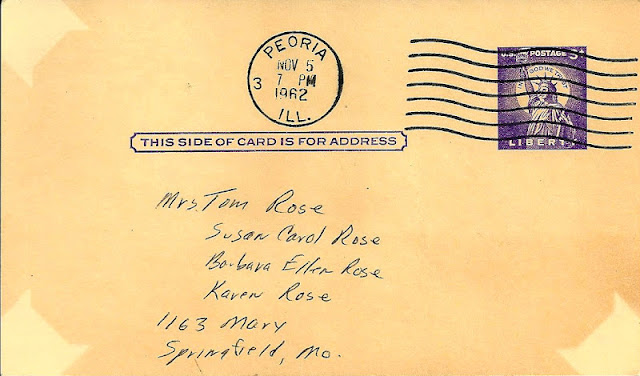 PEORIA
NOV 5
3 7 PM
1962
ILL.
U.S. POSTAGE 3¢
IN GOD WE TRUST
LIBERTY
THIS SIDE OF CARD IS FOR ADDRESS
Mrs. Tom Rose
Susan Carol Rose
Barbara Ellen Rose
Karen Rose
1163 Mary
Springfield, Mo.